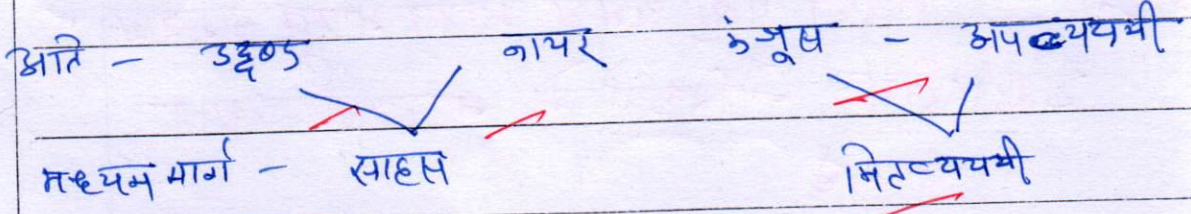 अति - उद्दण्ड कायर कंजूस - अपव्ययी
मध्यम मार्ग - साहस मितव्ययी